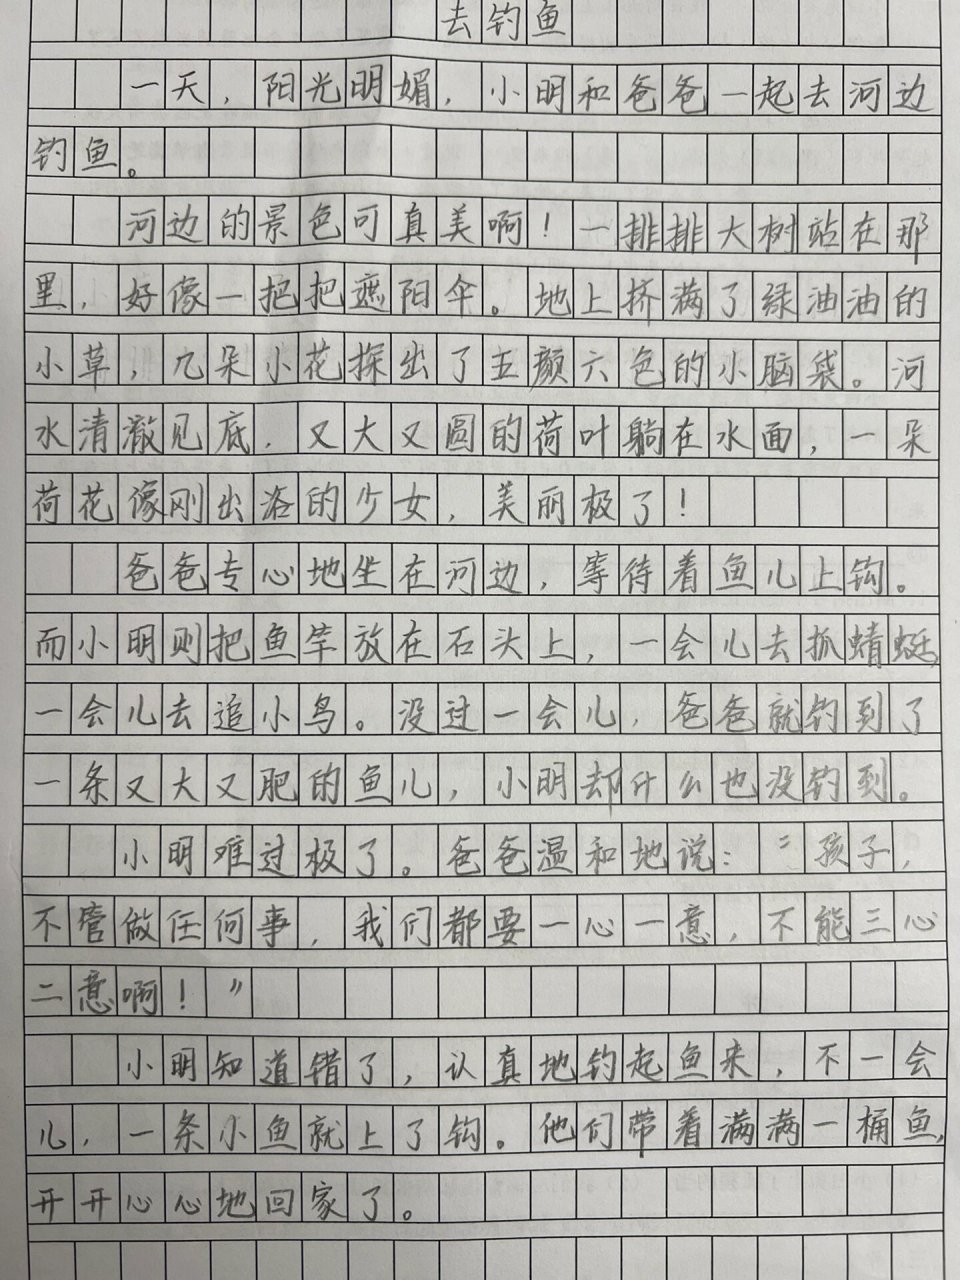 去钓鱼
一天，阳光明媚，小明和爸爸一起去河边
钓鱼。
河边的景色可真美啊！一排排大树站在那
里，好像一把把遮阳伞。地上挤满了绿油油的
小草，几朵小花探出了五颜六色的小脑袋。河
水清澈见底，又大又圆的荷叶躺在水面，一朵
荷花像刚出浴的少女，美丽极了！
爸爸专心地坐在河边，等待着鱼儿上钩。
而小明则把鱼竿放在石头上，一会儿去抓蜻蜓，
一会儿去追小鸟。没过一会儿，爸爸就钓到了
一条又大又肥的鱼儿，小明却什么也没钓到。
小明难过极了。爸爸温和地说：“孩子，
不管做任何事，我们都要一心一意，不能三心
二意啊！”
小明知道错了，认真地钓起鱼来，不一会
儿，一条小鱼就上了钩。他们带着满满一桶鱼，
开开心心地回家了。